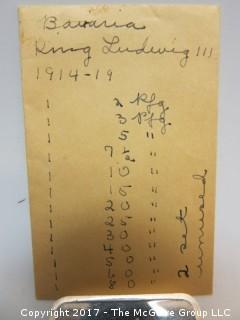 Bavaria
King Ludwig III
1914-19
1 2 Pfg.
1 3 Pfg.
1 5 "
1 7½ "
1 10 "
1 15 "
1 20 "
1 25 "
1 30 "
1 40 "
1 50 "
1 80 "
2 set
unused
Copyright 2017 - The McGraw Group LLC